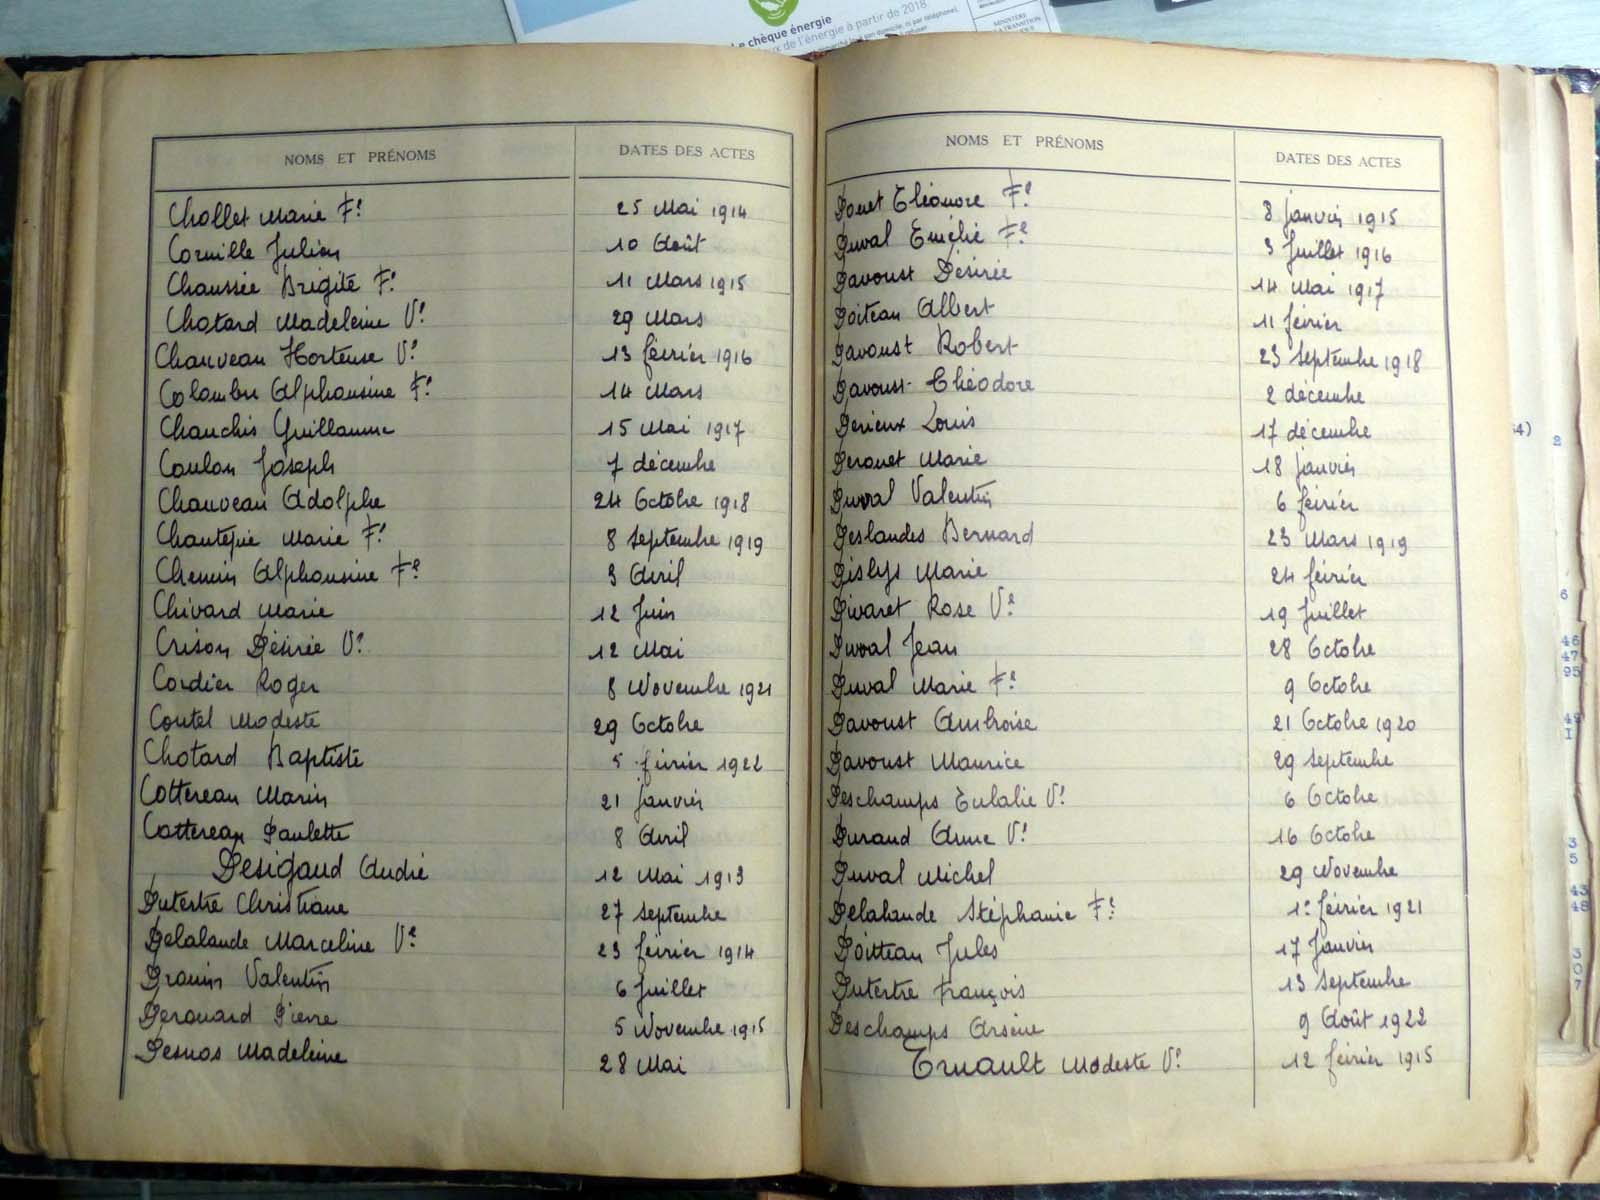 Le chèque énergie
de l'énergie à partir de 2018
MINISTÈRE
NOMS ET PRÉNOMS DATES DES ACTES
Chollet Marie Fe 25 Mai 1914
Corville Julien 10 Août
Chaussée Brigite Fe 11 Mars 1915
Chotard Madeleine Ve 29 Mars
Chauveau Hortense Ve 13 février 1916
Colombu Alphonsine Fe 14 Mars
Chauchis Guillaume 15 Mai 1917
Coulon Joseph 7 décembre
Chauveau Adolphe 24 Octobre 1918
Chantepie Marie Fe 8 Septembre 1919
Chemin Alphonsine Fe 3 Avril
Chivard Marie 12 Juin
Crison Désirée Ve 12 Mai
Cordier Roger 8 Novembre 1921
Coutel Modeste 29 Octobre
Chotard Baptiste 5 février 1922
Cottereau Marin 21 janvier
Cottereau Paulette 8 Avril
Desigaud André 12 Mai 1913
Dutertre Christiane 27 Septembre
Delalande Marceline Ve 23 février 1914
Drouin Valentin 6 Juillet
Derouard Pierre 5 Novembre 1915
Desnos Madeleine 28 Mai
NOMS ET PRÉNOMS DATES DES ACTES
Douet Eléonore Fe 8 janvier 1915
Duval Emélie Fe 3 Juillet 1916
Davoust Désirée 14 Mai 1917
Doiteau Albert 11 février
Davoust Robert 23 Septembre 1918
Davoust Théodore 2 décembre
Derieux Louis 17 décembre
Derouet Marie 18 janvier
Duval Valentin 6 février
Deslandes Bernard 23 Mars 1919
Dislys Marie 24 février
Divaret Rose Ve 19 Juillet
Duval Jean 28 Octobre
Duval Marie Fe 9 Octobre
Davoust Ambroise 21 Octobre 1920
Davoust Maurice 29 Septembre
Deschamps Eulalie Ve 6 Octobre
Durand Anne Ve 16 Octobre
Duval Michel 29 Novembre
Delalande Stéphanie Fe 1er février 1921
Doitteau Jules 17 Janvier
Dutertre François 13 Septembre
Deschamps Arsène 9 Août 1922
Ernault Modeste Ve 12 février 1915
2
6
46
47
95
3
5
43
48
3
0
7